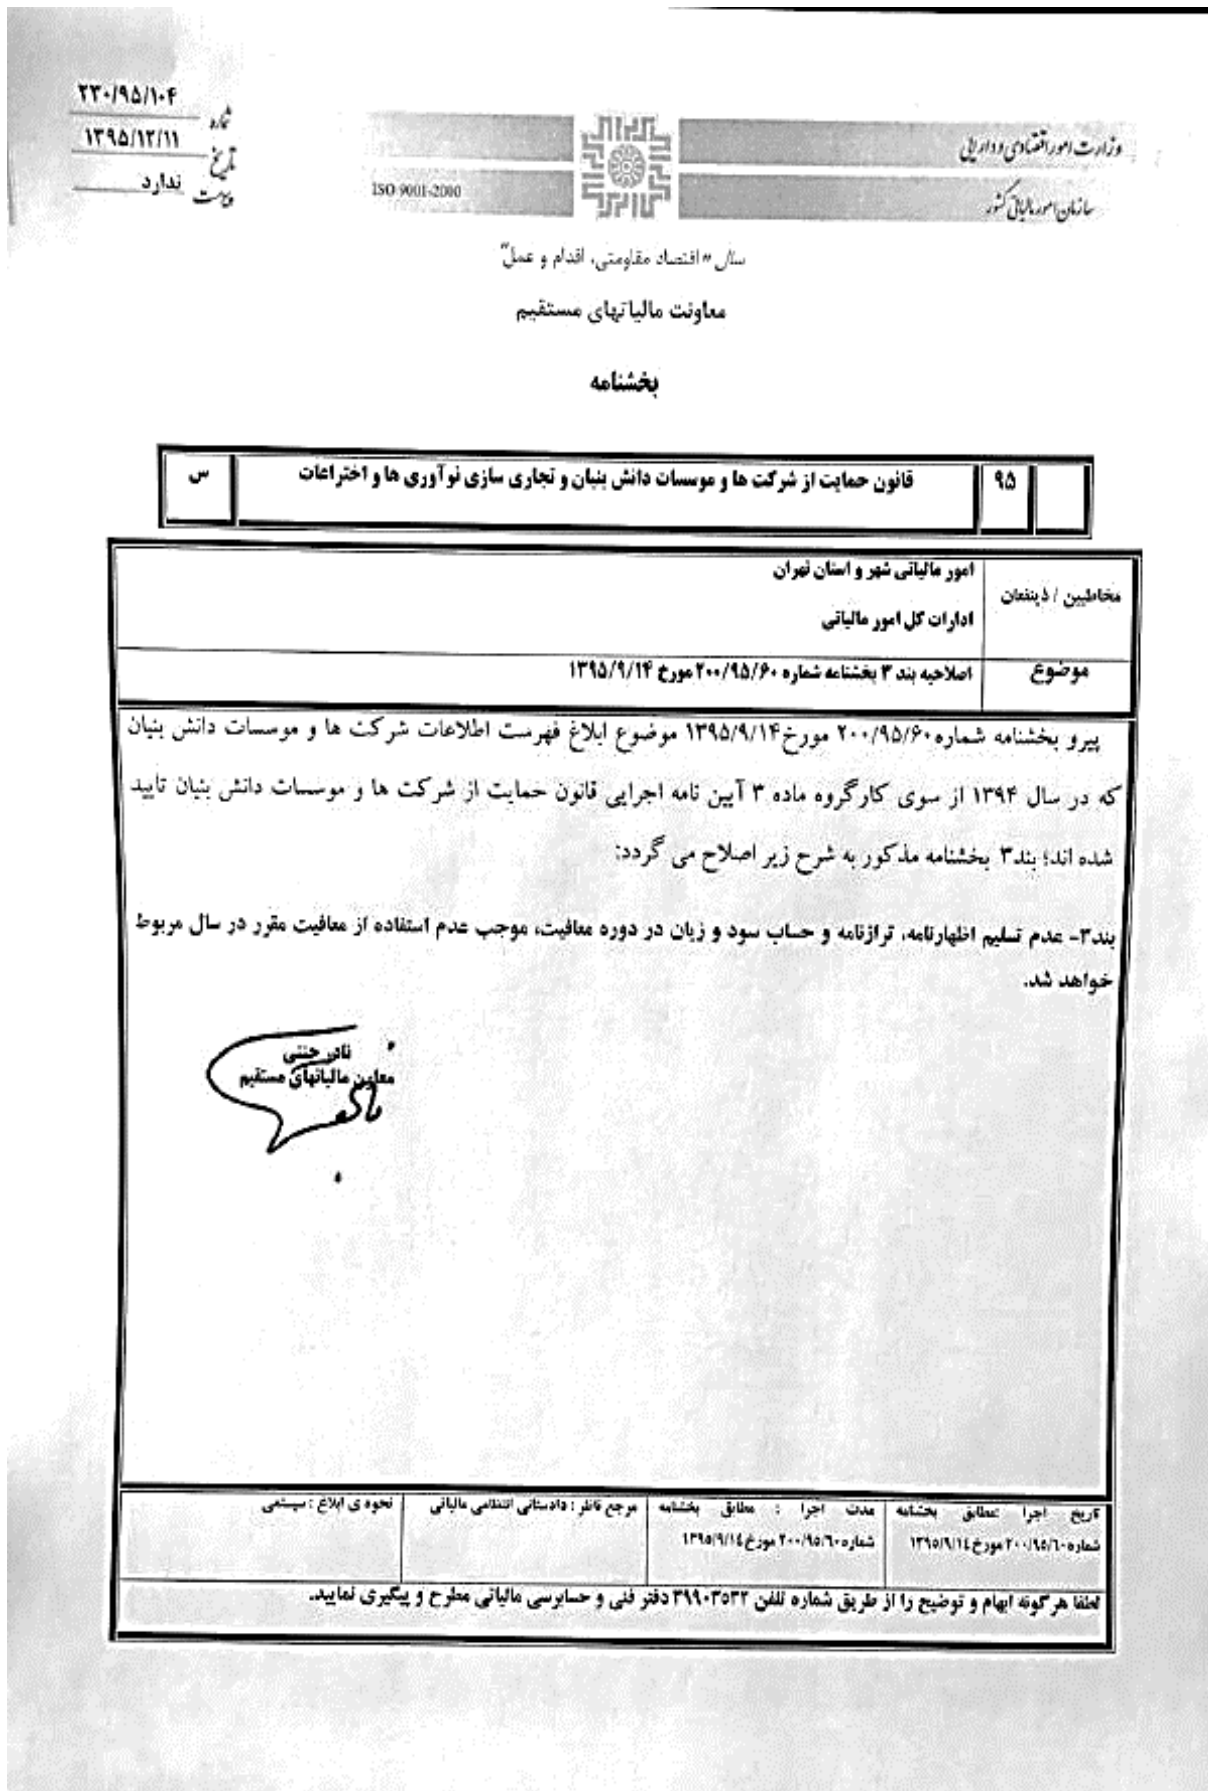 ۲۳۰/۹۵/۱۰۴
شماره
۱۳۹۵/۱۲/۱۱
تاریخ
ندارد
پیوست
وزارت امور اقتصادی و دارایی
سازمان امور مالیاتی کشور
ISO 9001-2000
سال "اقتصاد مقاومتی، اقدام و عمل"
معاونت مالیاتهای مستقیم
بخشنامه
۹۵ قانون حمایت از شرکت ها و موسسات دانش بنیان و تجاری سازی نوآوری ها و اختراعات س
مخاطبین / ذینفعان
امور مالیاتی شهر و استان تهران
ادارات کل امور مالیاتی
موضوع اصلاحیه بند ۳ بخشنامه شماره ۲۰۰/۹۵/۶۰ مورخ ۱۳۹۵/۹/۱۴
پیرو بخشنامه شماره۲۰۰/۹۵/۶۰ مورخ۱۳۹۵/۹/۱۴ موضوع ابلاغ فهرست اطلاعات شرکت ها و موسسات دانش بنیان
که در سال ۱۳۹۴ از سوی کارگروه ماده ۳ آیین نامه اجرایی قانون حمایت از شرکت ها و موسسات دانش بنیان تایید
شده اند؛ بند۳ بخشنامه مذکور به شرح زیر اصلاح می گردد:
بند۳- عدم تسلیم اظهارنامه، ترازنامه و حساب سود و زیان در دوره معافیت، موجب عدم استفاده از معافیت مقرر در سال مربوط
خواهد شد.
نادر جنتی
معاون مالیاتهای مستقیم
تاریخ اجرا :مطابق بخشنامه
شماره۲۰۰/۹۵/۶۰ مورخ۱۳۹۵/۹/۱۴
مدت اجرا : مطابق بخشنامه
شماره۲۰۰/۹۵/۶۰ مورخ۱۳۹۵/۹/۱۴
مرجع ناظر : دادستانی انتظامی مالیاتی
نحوه ی ابلاغ : سیستمی
لطفا هر گونه ابهام و توضیح را از طریق شماره تلفن ۳۹۹۰۳۵۳۲ دفتر فنی و حسابرسی مالیاتی مطرح و پیگیری نمایید.